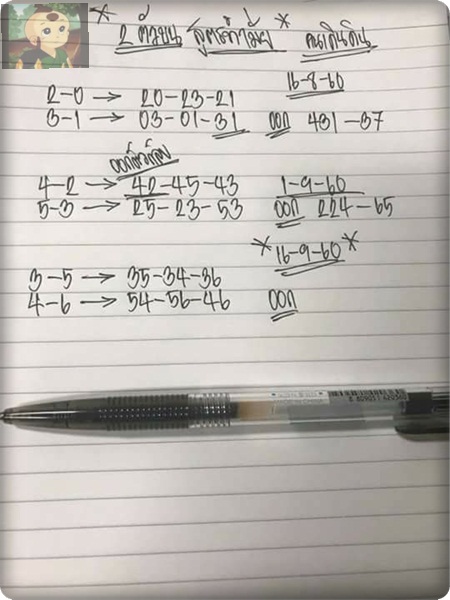 * 2 ตัวบน สูตรคำม้ำ * คนเดินดิน
16-8-60
2-0 → 20-23-21
3-1 → 03-01-31 ออก 431-37
4-2 → 42-45-43 1-9-60
5-3 → 25-23-53 ออก 224-65
*16-9-60*
3-5 → 35-34-36
4-6 → 54-56-46 ออก